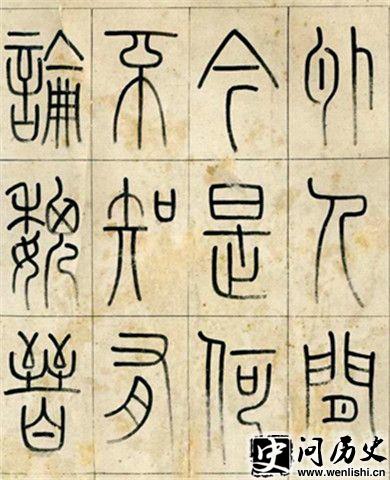 外人間
今是何
不知有
論魏晉
史 问历史
www.wenlishi.cn